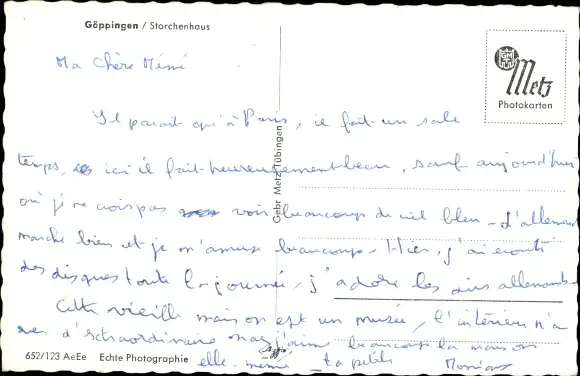 Göppingen / Storchenhaus
Metz
Photokarten
Gebr Metz, Tübingen
Ma Chère Mémé
Il parait qu'à Paris, il fait un sale
temps, ici il fait heureusement beau, sauf aujourd'hui
où je ne vois pas beaucoup de ciel bleu - L'allemand
marche bien et je m'amuse beaucoup - Hier, j'ai écouté
des disques toute la journée, j'adore les airs allemands -
Cette vieille maison est un musée, l'intérieur n'a
rien d'extraordinaire mais j'aime beaucoup la maison
elle-même - ta petite
652/123 AeEe Echte Photographie